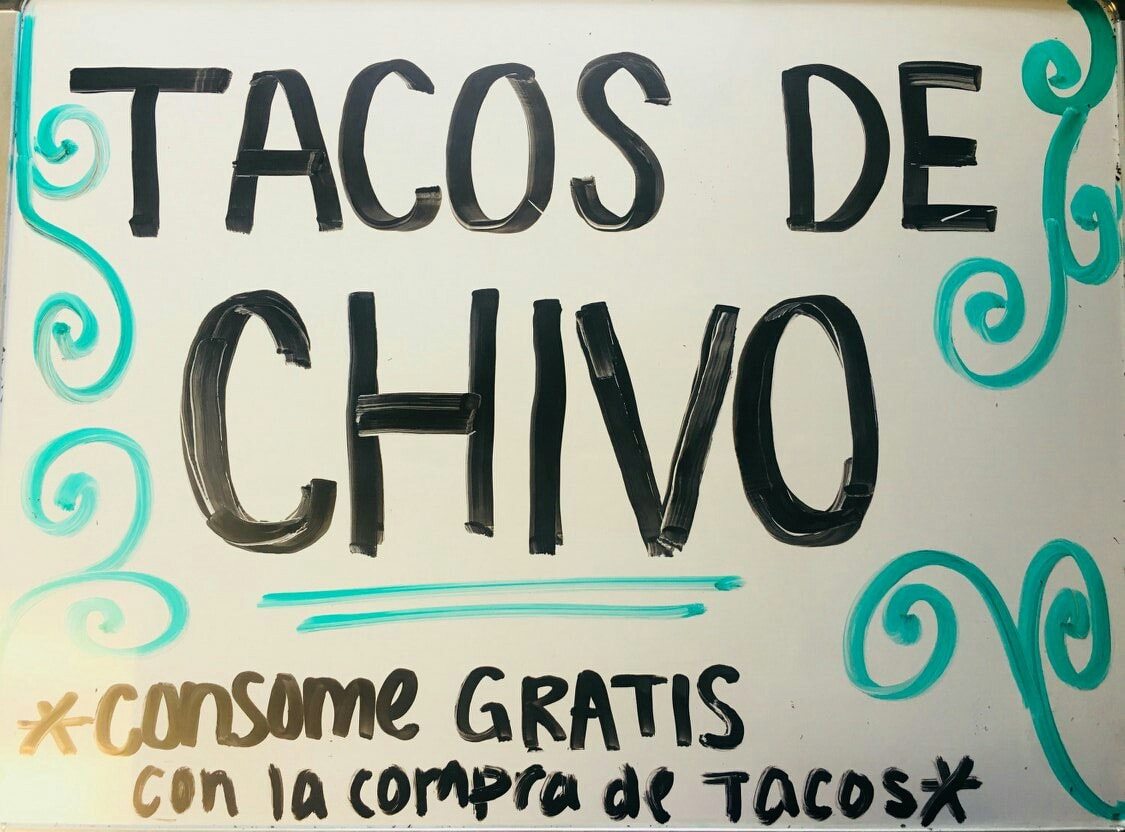 TACOS DE
CHIVO
*consome GRATIS
con la compra de Tacos*